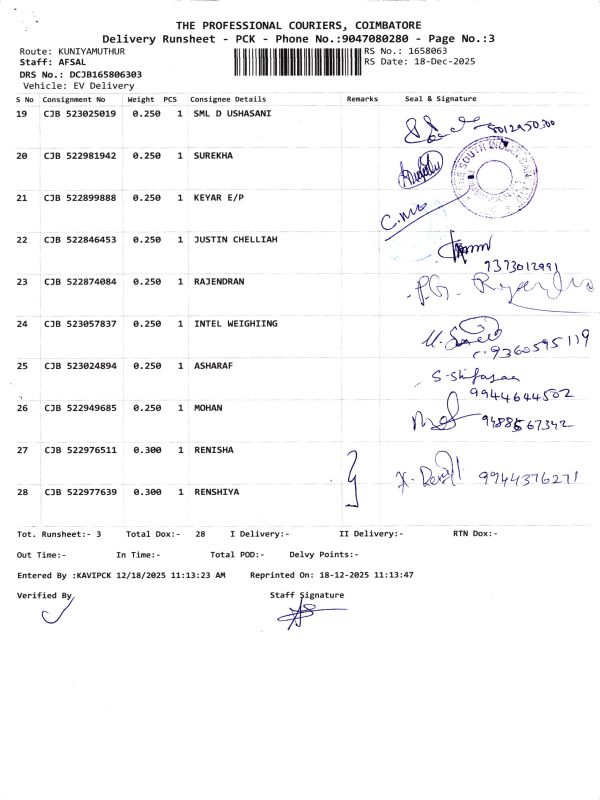 THE PROFESSIONAL COURIERS, COIMBATORE
Delivery Runsheet - PCK - Phone No.:9047080280 - Page No.:3
Route: KUNIYAMUTHUR RS No.: 1658063
Staff: AFSAL RS Date: 18-Dec-2025
DRS No.: DCJB165806303
Vehicle: EV Delivery
S No Consignment No Weight PCS Consignee Details Remarks Seal & Signature
19 CJB 523025019 0.250 1 SML D USHASANI
20 CJB 522981942 0.250 1 SUREKHA
21 CJB 522899888 0.250 1 KEYAR E/P
22 CJB 522846453 0.250 1 JUSTIN CHELLIAH
7373012991
23 CJB 522874084 0.250 1 RAJENDRAN P.G.
24 CJB 523057837 0.250 1 INTEL WEIGHIING
9360595119
25 CJB 523024894 0.250 1 ASHARAF
9944644502
26 CJB 522949685 0.250 1 MOHAN
27 CJB 522976511 0.300 1 RENISHA 9944376271
28 CJB 522977639 0.300 1 RENSHIYA
Tot. Runsheet:- 3 Total Dox:- 28 I Delivery:- II Delivery:- RTN Dox:-
Out Time:- In Time:- Total POD:- Delvy Points:-
Entered By :KAVIPCK 12/18/2025 11:13:23 AM Reprinted On: 18-12-2025 11:13:47
Verified By Staff Signature